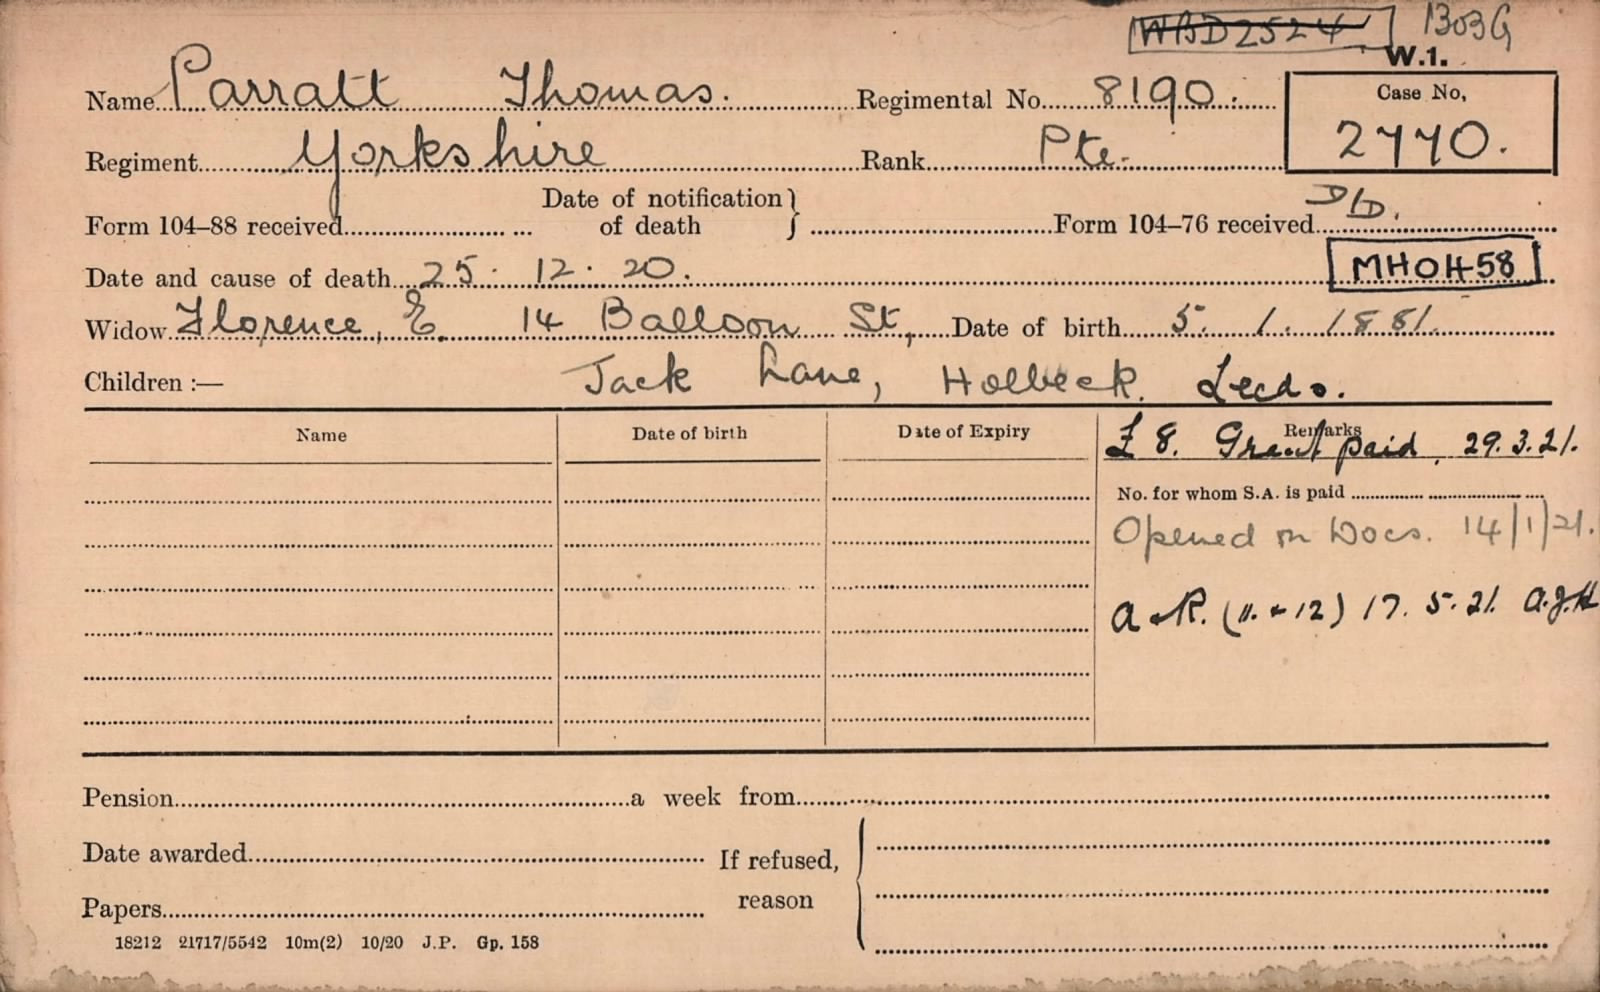 WBD2524 1303G
W.1.
Name Parratt Thomas. Regimental No. 8190. Case No,
2770.
Regiment Yorkshire Rank Pte.
Form 104–88 received Date of notification of death } Form 104–76 received D/D.
Date and cause of death 25. 12. 20. MHOH58
Widow Florence, E. 14 Balloon St, Date of birth 5. 1. 1881.
Children :— Jack Lane, Holbeck. Leeds.
Name Date of birth Date of Expiry Remarks
£8. Grant paid. 29.3.21.
No. for whom S.A. is paid
Opened on Docs. 14/1/21.
A & R. (11. & 12) 17. 5. 21. A.J.H
Pension a week from
Date awarded If refused,
Papers reason
18212 21717/5542 10m(2) 10/20 J.P. Gp. 158